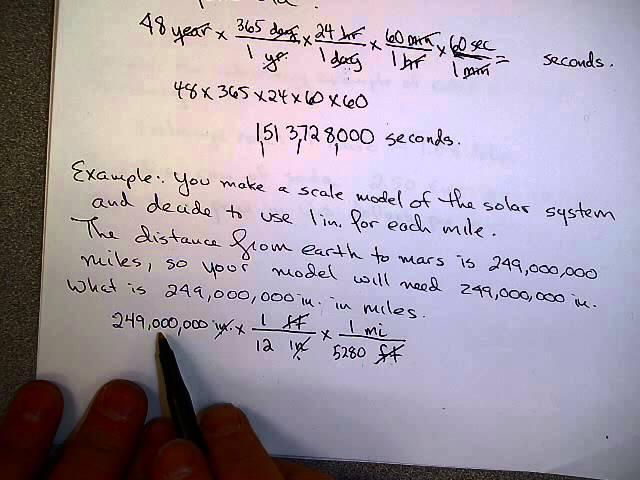 48 year x 365 day / 1 yr x 24 hr / 1 day x 60 min / 1 hr x 60 sec / 1 min = seconds.
48 x 365 x 24 x 60 x 60
1,513,728,000 seconds.
Example: You make a scale model of the solar system
and decide to use 1 in. for each mile.
The distance from earth to mars is 249,000,000
miles, so your model will need 249,000,000 in.
What is 249,000,000 in. in miles.
249,000,000 in. x 1 ft / 12 in x 1 mi / 5280 ft